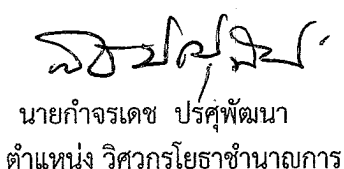 นายกำจรเดช ปรศุพัฒนา
ตำแหน่ง วิศวกรโยธาชำนาญการ